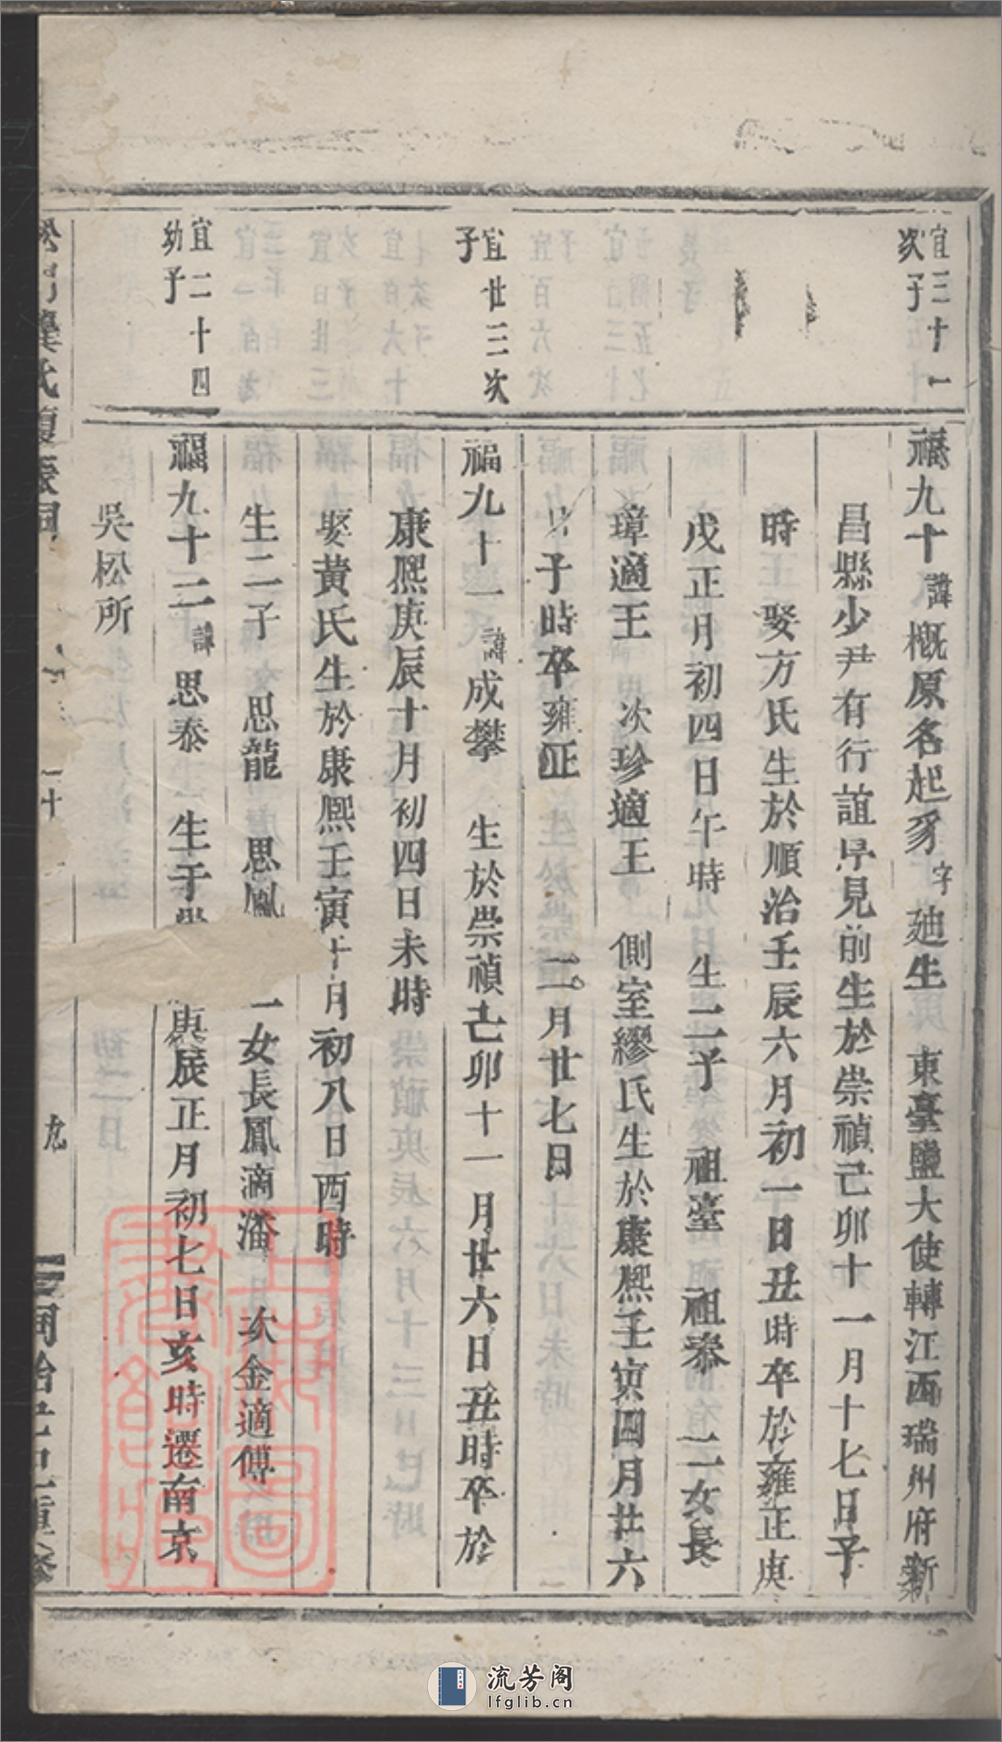 宜三十一
次子
福九十 諱概原名起豸 字廸生 東臺鹽大使轉江西瑞州府新
昌縣少尹有行誼另見前生於崇禎己卯十一月十七日子
時娶方氏生於順治壬辰六月初一日丑時卒於雍正庚
戌正月初四日午時 生二子 祖臺 祖泰 二女長
璋適王 次珍適王 側室繆氏生於康熙壬寅四月廿六
日子時卒雍正 二月廿七日
宜廿三次
子
福九十一 諱成攀 生於崇禎己卯十一月廿六日丑時卒於
康熙庚辰十月初四日未時
娶黃氏生於康熙壬寅十月初八日酉時
生二子 思龍 思鳳 一女長鳳適潘 次金適傅
宜二十四
幼子
福九十二 諱思泰 生于 庚辰正月初七日亥時遷南京
吳松所
龔氏復振祠
九
流芳阁
lfglib.cn